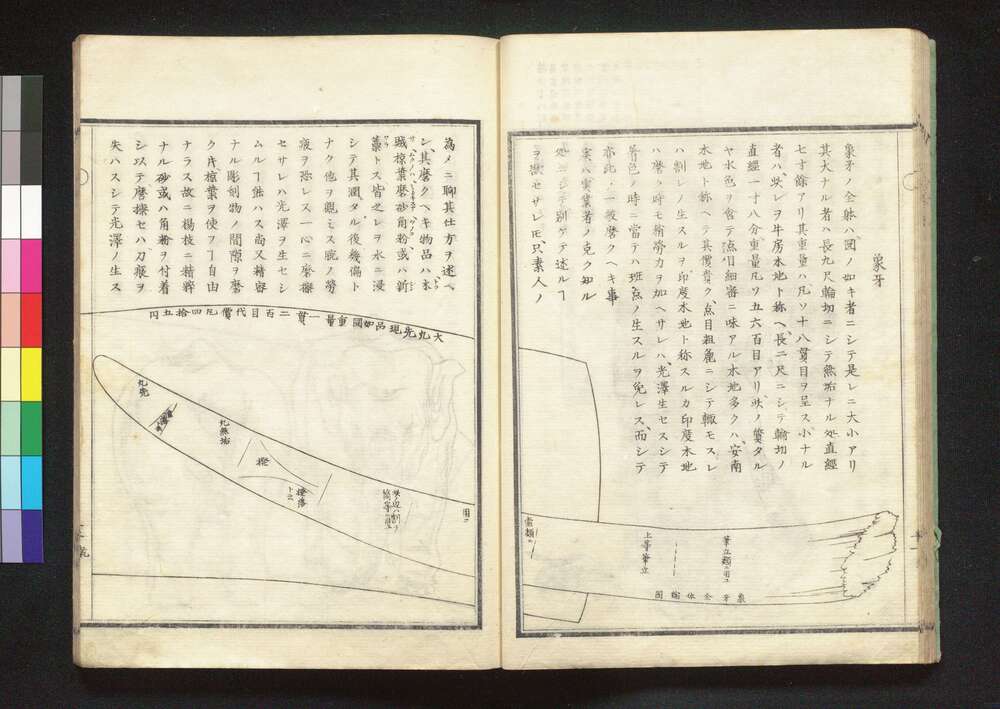 象牙
象牙ノ全躰ハ図ノ如キ者ニシテ是レニ大小アリ
其大ナル者ハ長九尺輪切ニシテ無垢ナル処直経
七寸餘アリ其重量ハ凡ソ十八貫目ヲ呈ス小ナル
者ハ、レヲ牛房木地ト称ヘ、長ニ尺ニシテ輪切ノ
直經一寸八分重量凡ソ五六百目アリ、ノ質タル
ヤ水色ヲ含テ点目細審ニ味アル木地多クハ、安南
木地ト称ヘテ其價貴ク、点目粗麁ニシテ輙モスレ
ハ割レノ生スルヲ印度木地ト称スルカ印度木地
ハ磨クノ時モ稍労力ヲ加ヘサレハ、光澤生セスシテ
亦此ノ一般磨クヘキ事
着色ノ時ニ當テハ斑点ノ生スルヲ免レス、而シテ
実ハ実業者ノ克ク知ル
処ニシテ別ケテ述ルヿ
ヲ獣セサレ𪜈只素人ノ
筆立類ニ用ユ
上等筆立
象牙全体縮図
為メニ聊其仕方ヲ述ベ
シ、其磨クヘキ物品ハ木
賊椋葉磨砂角粉或ハ新
藁トス皆之レヲ水ニ浸
シテ其潤タル後幾偏ト
ナク他ヲ観ミス腕ノ労
疲ヲ弥レス一心ニ磨擦
セサレハ光澤ヲ生セシ
ムルヿ能ハス尚又精密
ナル彫刻物ノ間隙ヲ磨
クキ椋葉ヲ使フヿ自由
ナラス故ニ楊枝ニ精粹
ナル砂或ハ角粉ヲ付着
シ以テ磨擦セハ刀痕ヲ
失ハスシテ光澤ノ生ス
大丸先現品如図重量一貫二百目代價凡四拾五円
丸無垢
樫
ト云
用ユ